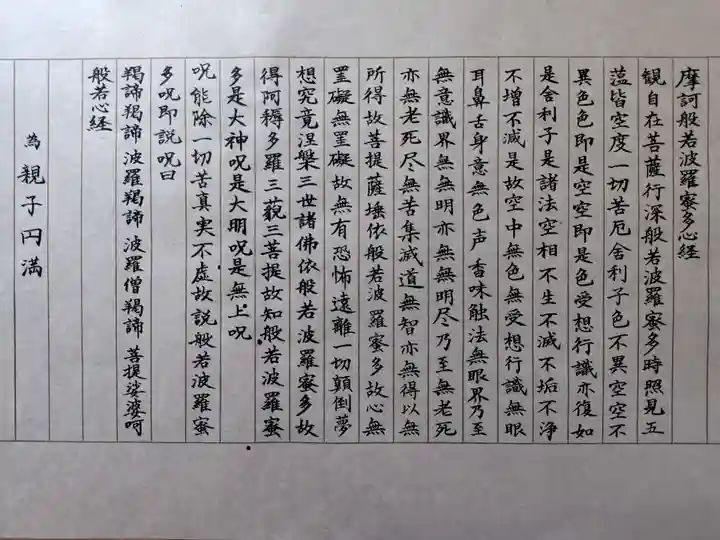 摩訶般若波羅蜜多心経
観自在菩薩行深般若波羅蜜多時照見五
蘊皆空度一切苦厄舎利子色不異空空不
異色色即是空空即是色受想行識亦復如
是舎利子是諸法空相不生不滅不垢不浄
不増不減是故空中無色無受想行識無眼
耳鼻舌身意無色声香味触法無眼界乃至
無意識界無無明亦無無明尽乃至無老死
亦無老死尽無苦集滅道無智亦無得以無
所得故菩提薩埵依般若波羅蜜多故心無
罣礙無罣礙故無有恐怖遠離一切顛倒夢
想究竟涅槃三世諸佛依般若波羅蜜多故
得阿耨多羅三藐三菩提故知般若波羅蜜
多是大神呪是大明呪是無上呪
呪能除一切苦真実不虚故説般若波羅蜜
多呪即説呪曰
羯諦羯諦波羅羯諦波羅僧羯諦菩提娑婆呵
般若心経
為親子円満